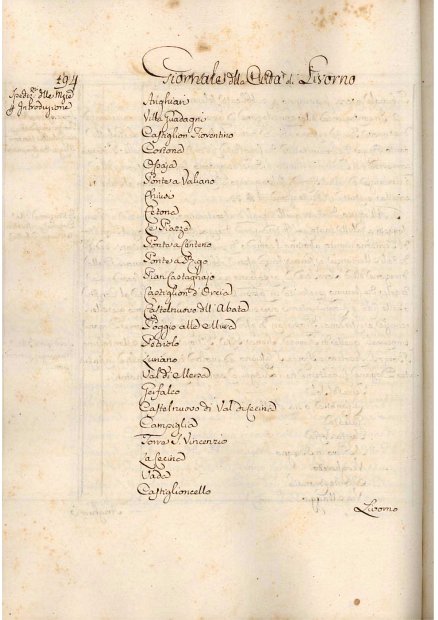 194
Giornale della Città di Livorno
Spediz.ni delle Merci
p Introduzione
Anghiari
Villa Guadagni
Castiglion Fiorentino
Cortona
Ossaja
Ponte a Valiano
Chiusi
Cetona
Le Piazze
Ponte a Centeno
Ponte a Rigo
Pian Castagnajo
Castiglion d'Orcia
Castelnuovo dell'Abate
Poggio alle Mura
Petriolo
Luriano
Val di Mersa
Gerfalco
Castelnuovo di Val di Cecina
Campiglia
Torre S. Vincenzio
La Cecina
Vada
Castiglioncello
Livorno